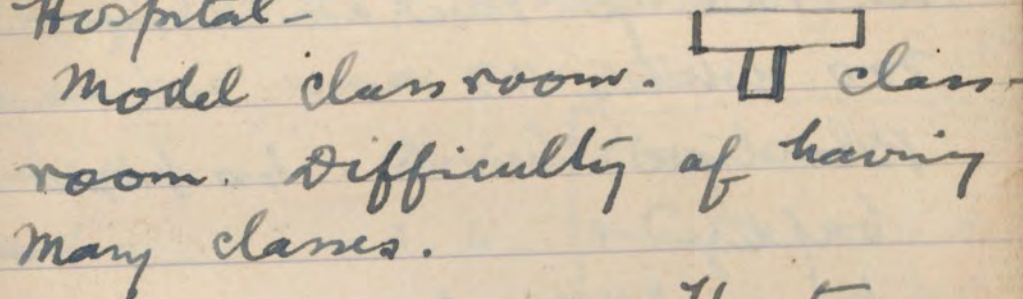 Hospital -
Model classroom. class-
room. Difficulty of having
many classes.